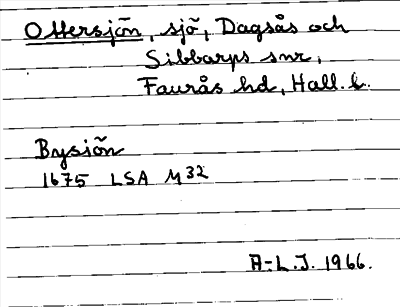 Ottersjön, sjö, Dagsås och
Sibbarps snr,
Faurås hd, Hall. l.
Bysiön
1675 LSA M32
A-L.J. 1966.